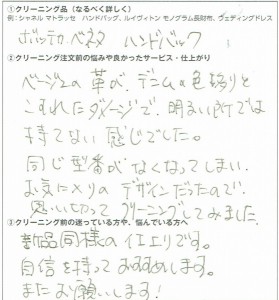 ①クリーニング品（なるべく詳しく）
例：シャネル マトラッセ ハンドバッグ、ルイヴィトン モノグラム長財布、ウェディングドレス
ボッテガ・ベネタ ハンドバック
②クリーニング注文前の悩みや良かったサービス・仕上がり
ベージュの革が、デニムの色移りと
こすれたダメージで、明るい所では
持てない感じでした。
同じ型番がなくなってしまい、
お気に入りのデザインだったので、
思いきってクリーニングしてみました。
③クリーニング前の迷っている方や、悩んでいる方へ
新品同様の仕上りです。
自信を持っておすすめします。
またお願いします！